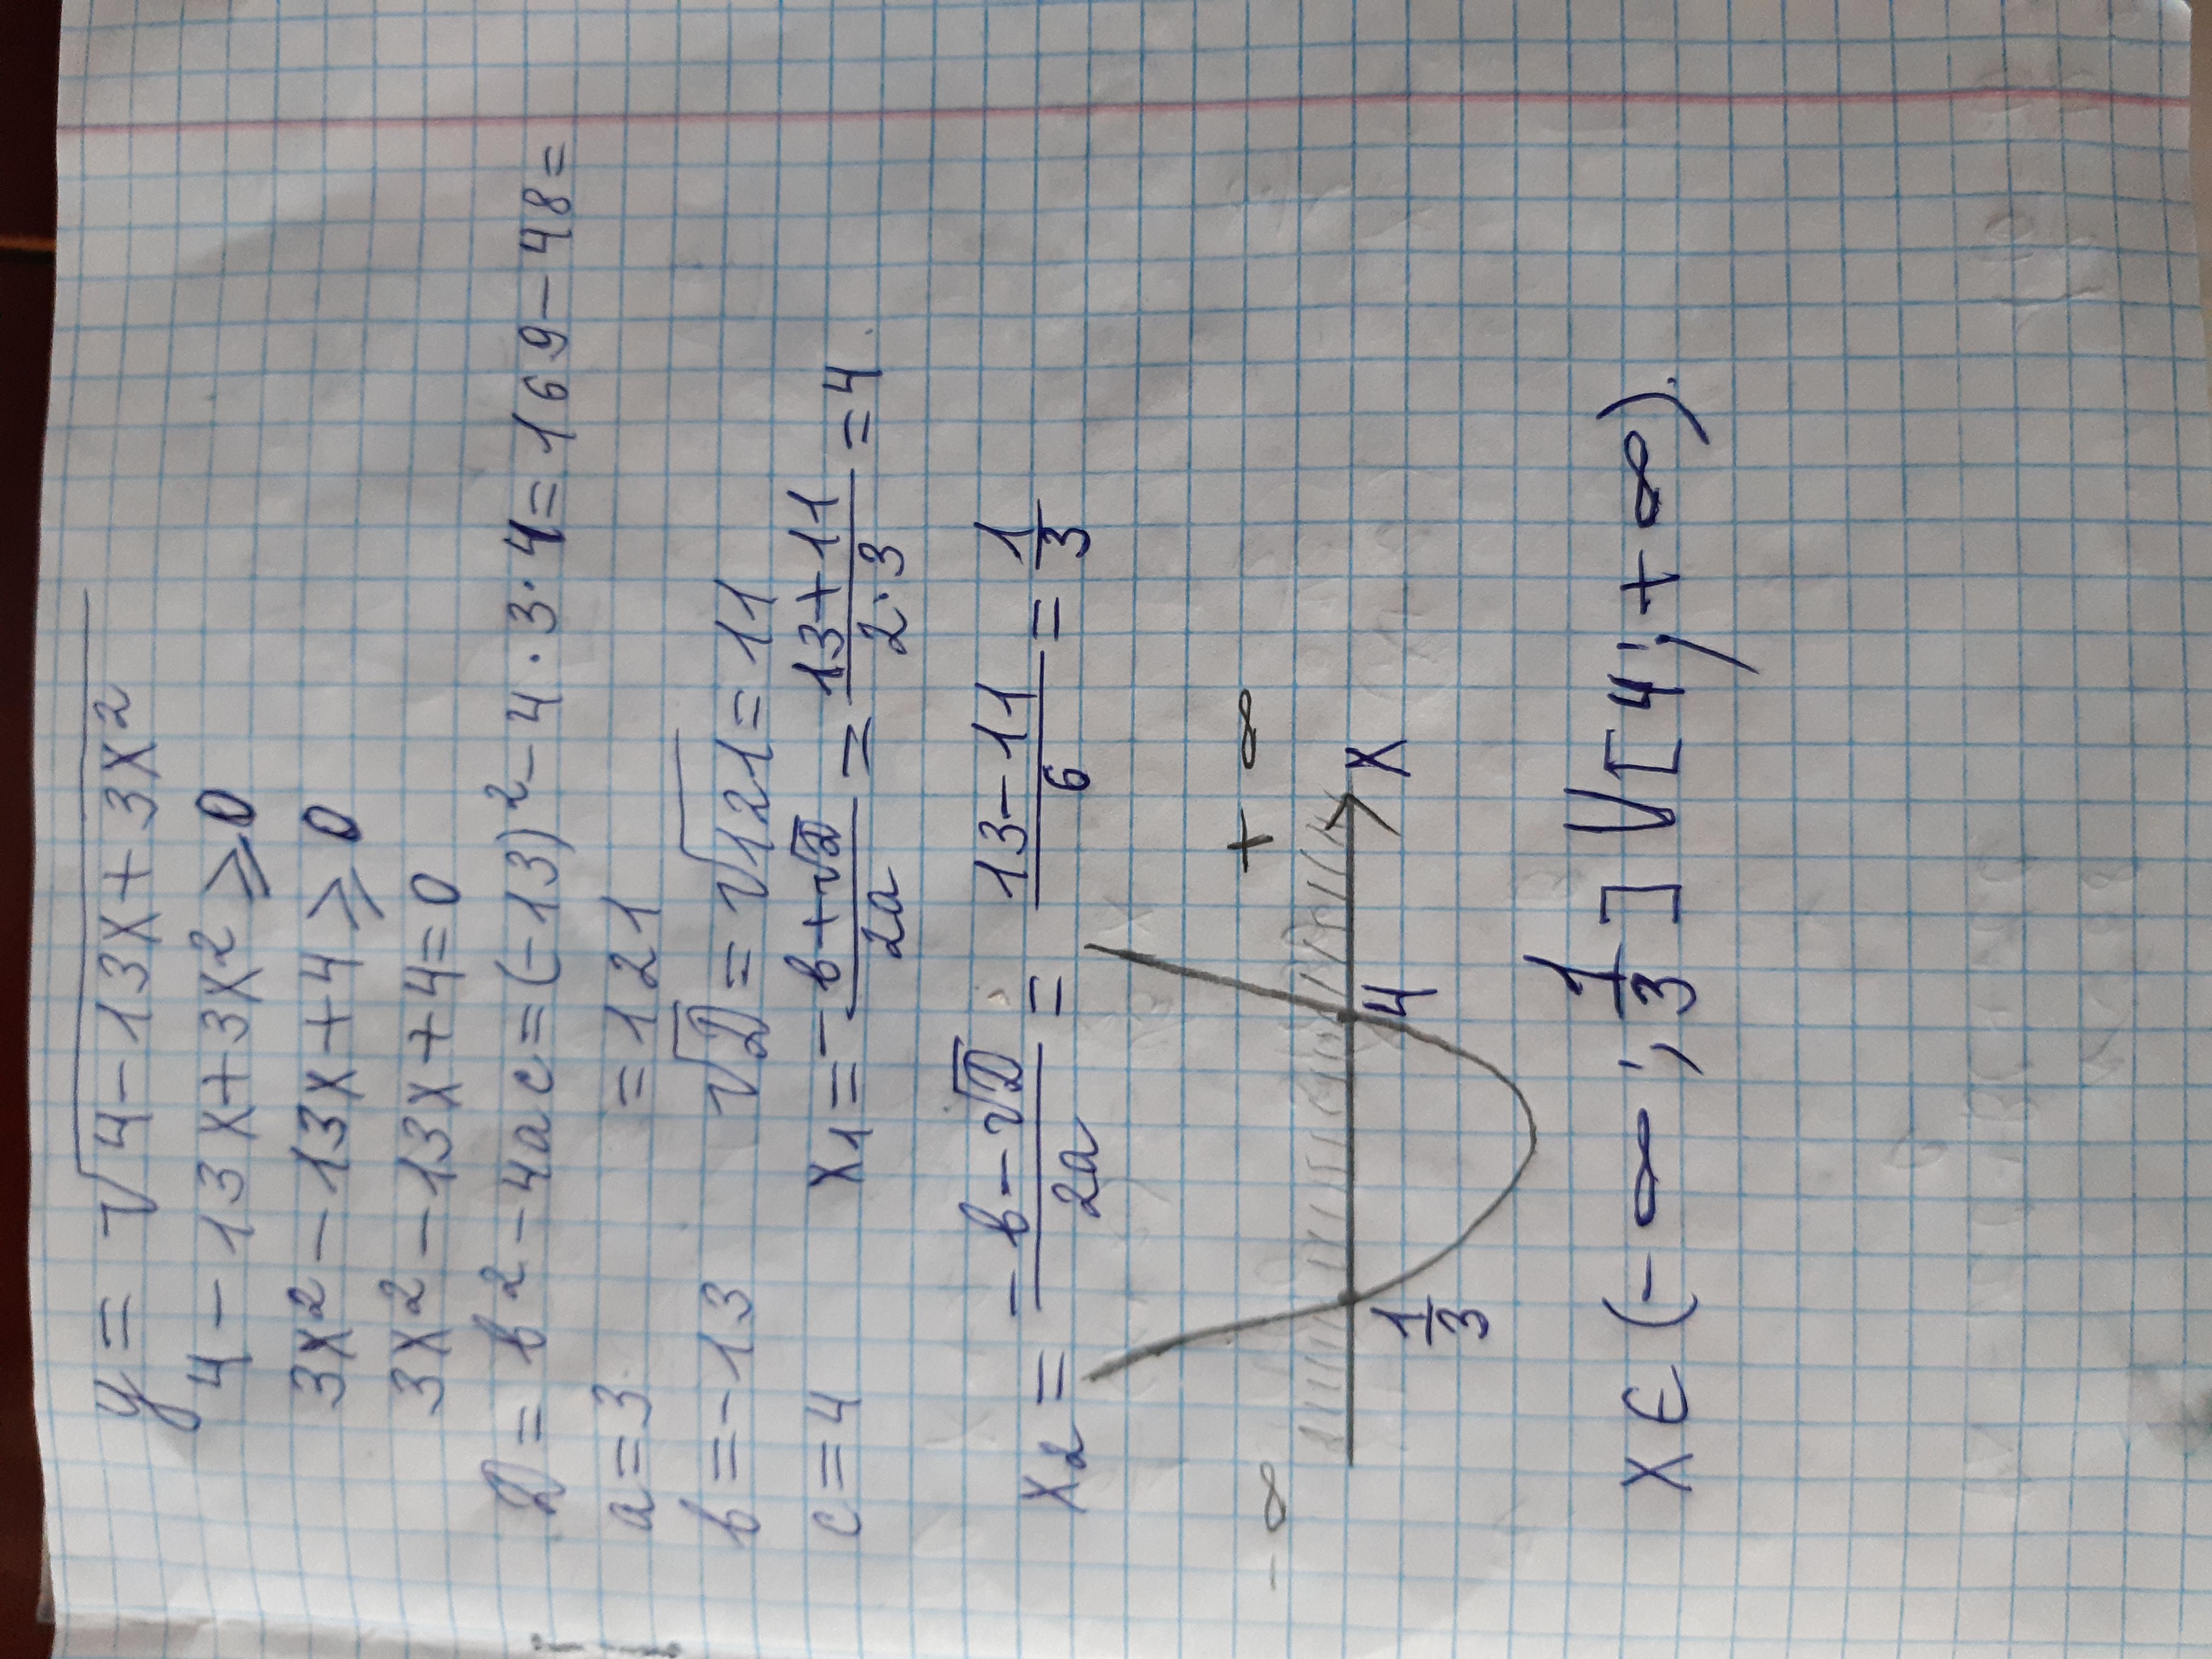 y = √4 - 13x + 3x²
4 - 13x + 3x² ≥ 0
3x² - 13x + 4 ≥ 0
3x² - 13x + 4 = 0
D = b² - 4ac = (-13)² - 4 · 3 · 4 = 169 - 48 =
a = 3 = 121
b = -13 √D = √121 = 11
c = 4 x₁ = (-b + √D)/(2a) = (13 + 11)/(2 · 3) = 4
x₂ = (-b - √D)/(2a) = (13 - 11)/6 = 1/3
-∞ +∞
1/3 4 x
x ∈ (-∞; 1/3] V [4; +∞).